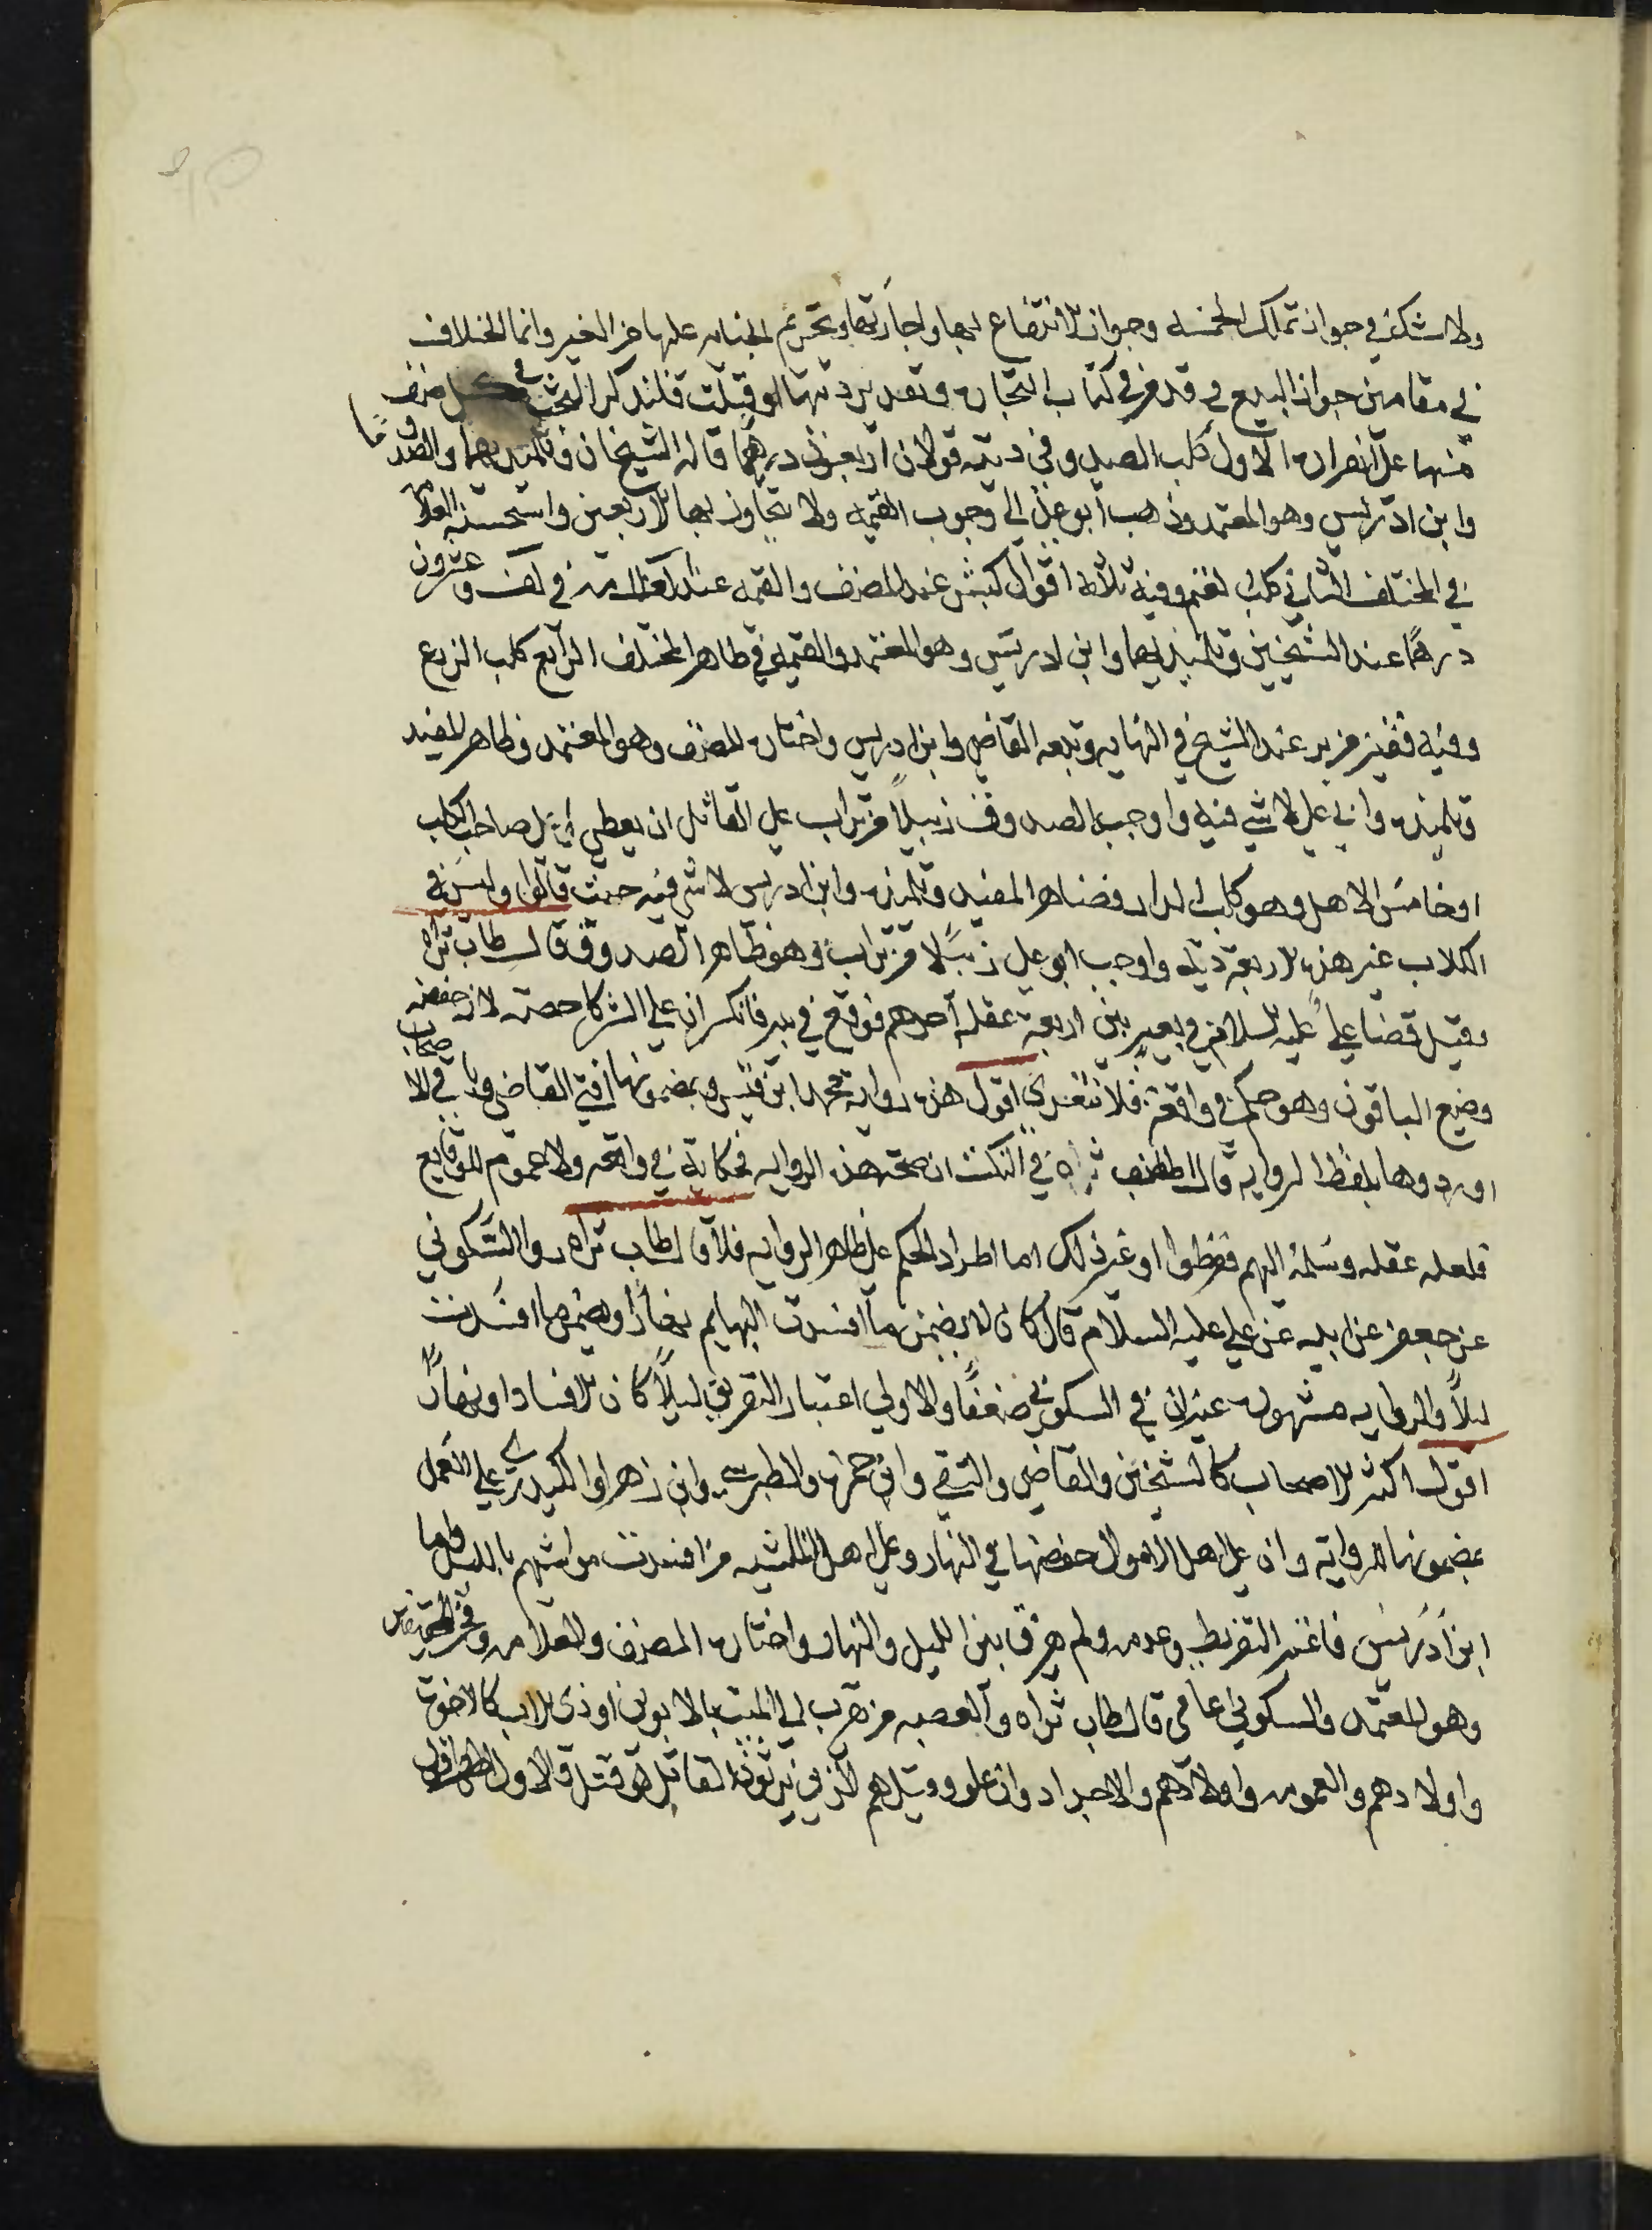 ولا شك في جواز تملك الخمسة وجواز الانتفاع بها واجارتها وتحريم الجناية عليها من الغير وانما الخلاف
في مقامين جواز البيع وقد مر في كتاب التجارة وتقدير ديتها لو قتلت فلنذكر البحث في كل صنف
منها على انفراده الاول كلب الصيد وفي ديته قولان اربعون درهما قاله الشيخان وتلميذهما والصدوق
وابن ادريس وهو المعتمد وذهب ابو علي الى وجوب القيمة ولا يتجاوز بها الاربعين واستحسنه العلامة
في المختلف الثاني كلب الغنم وفيه ثلاثة اقوال كبش عند المصنف والقيمة عند العلامة في وعشرون
درهمًا عند الشيخين وتلميذيهما وابن ادريس وهو المعتمد والقيمة في ظاهر المختلف الرابع كلب الزرع
وفيه قفيز من بر عند الشيخ في النهاية وتبعه القاضي وابن ادريس واختاره المصنف وهو المعتمد وظاهر المفيد
وتلميذه وابي علي لا شي فيه واوجب الصدوق زبيلًا من تراب على القاتل ان يعطي صاحب الكلب
او خامس الاهل وهو كلب الدار وظاهر المفيد وتلميذه وابن ادريس لا شي فيه حيث قالوا وليس في
الكلاب غير هذه الاربعة دية واوجب ابو علي زبيلًا من تراب وهو ظاهر الصدوق قال طاب ثراه
وقيل قضا علي عليه السلام في بعير بين اربعة عقله احدهم فوقع في بير فانكسر ان على الشركا حصته لانه حفظه
وضيع الباقون وهو حكم في واقعة فلا تتعدى اقول هذه رواية محمد ابن قيس وبمضمونها افتى القاضي وباقي الاصحاب
اوردوها بلفظ الرواية قال المصنف ثراه في النكت ان صحت هذه الرواية فحكاية في واقعه ولا عموم للوقايع
فلعله عقله وسلمه اليهم ففرطوا او غير ذلك اما اطراد الحكم على ظاهر الرواية فلا قال طاب ثراه روا السكوني
عن جعفر عن ابيه عن علي عليه السلام قال كان لا يضمن ما افسدت البهايم نهارًا ويضمن ما افسدت
ليلًا والرواية مشهورة غير ان في السكوني ضعفًا والاولى اعتبار التفريط ليلًا كان الافساد او نهارًا
اقول اكثر الاصحاب كالشيخين والقاضي والتقي وابن حمزة والطبرسي وابن زهرا والكيدري على العمل
بمضمون الرواية وان على اهل الاموال حفظها في النهار وعلى اهل الماشيه ما افسدت مواشيهم بالليل واما
ابن ادريس فاعتبر التفريط وعدمه ولم يفرق بين الليل والنهار واختاره المصنف والعلامه وفخر المحققين
وهو المعتمد والسكوني عامي قال طاب ثراه والعصبه من تقرب الى الميت بالابوين او ذي الاب كالاخوة
واولادهم والعمومه واولادهم والاجداد وان علو وقيل هم الذين يرثون القاتل لو قتل والاول اظهر اقول